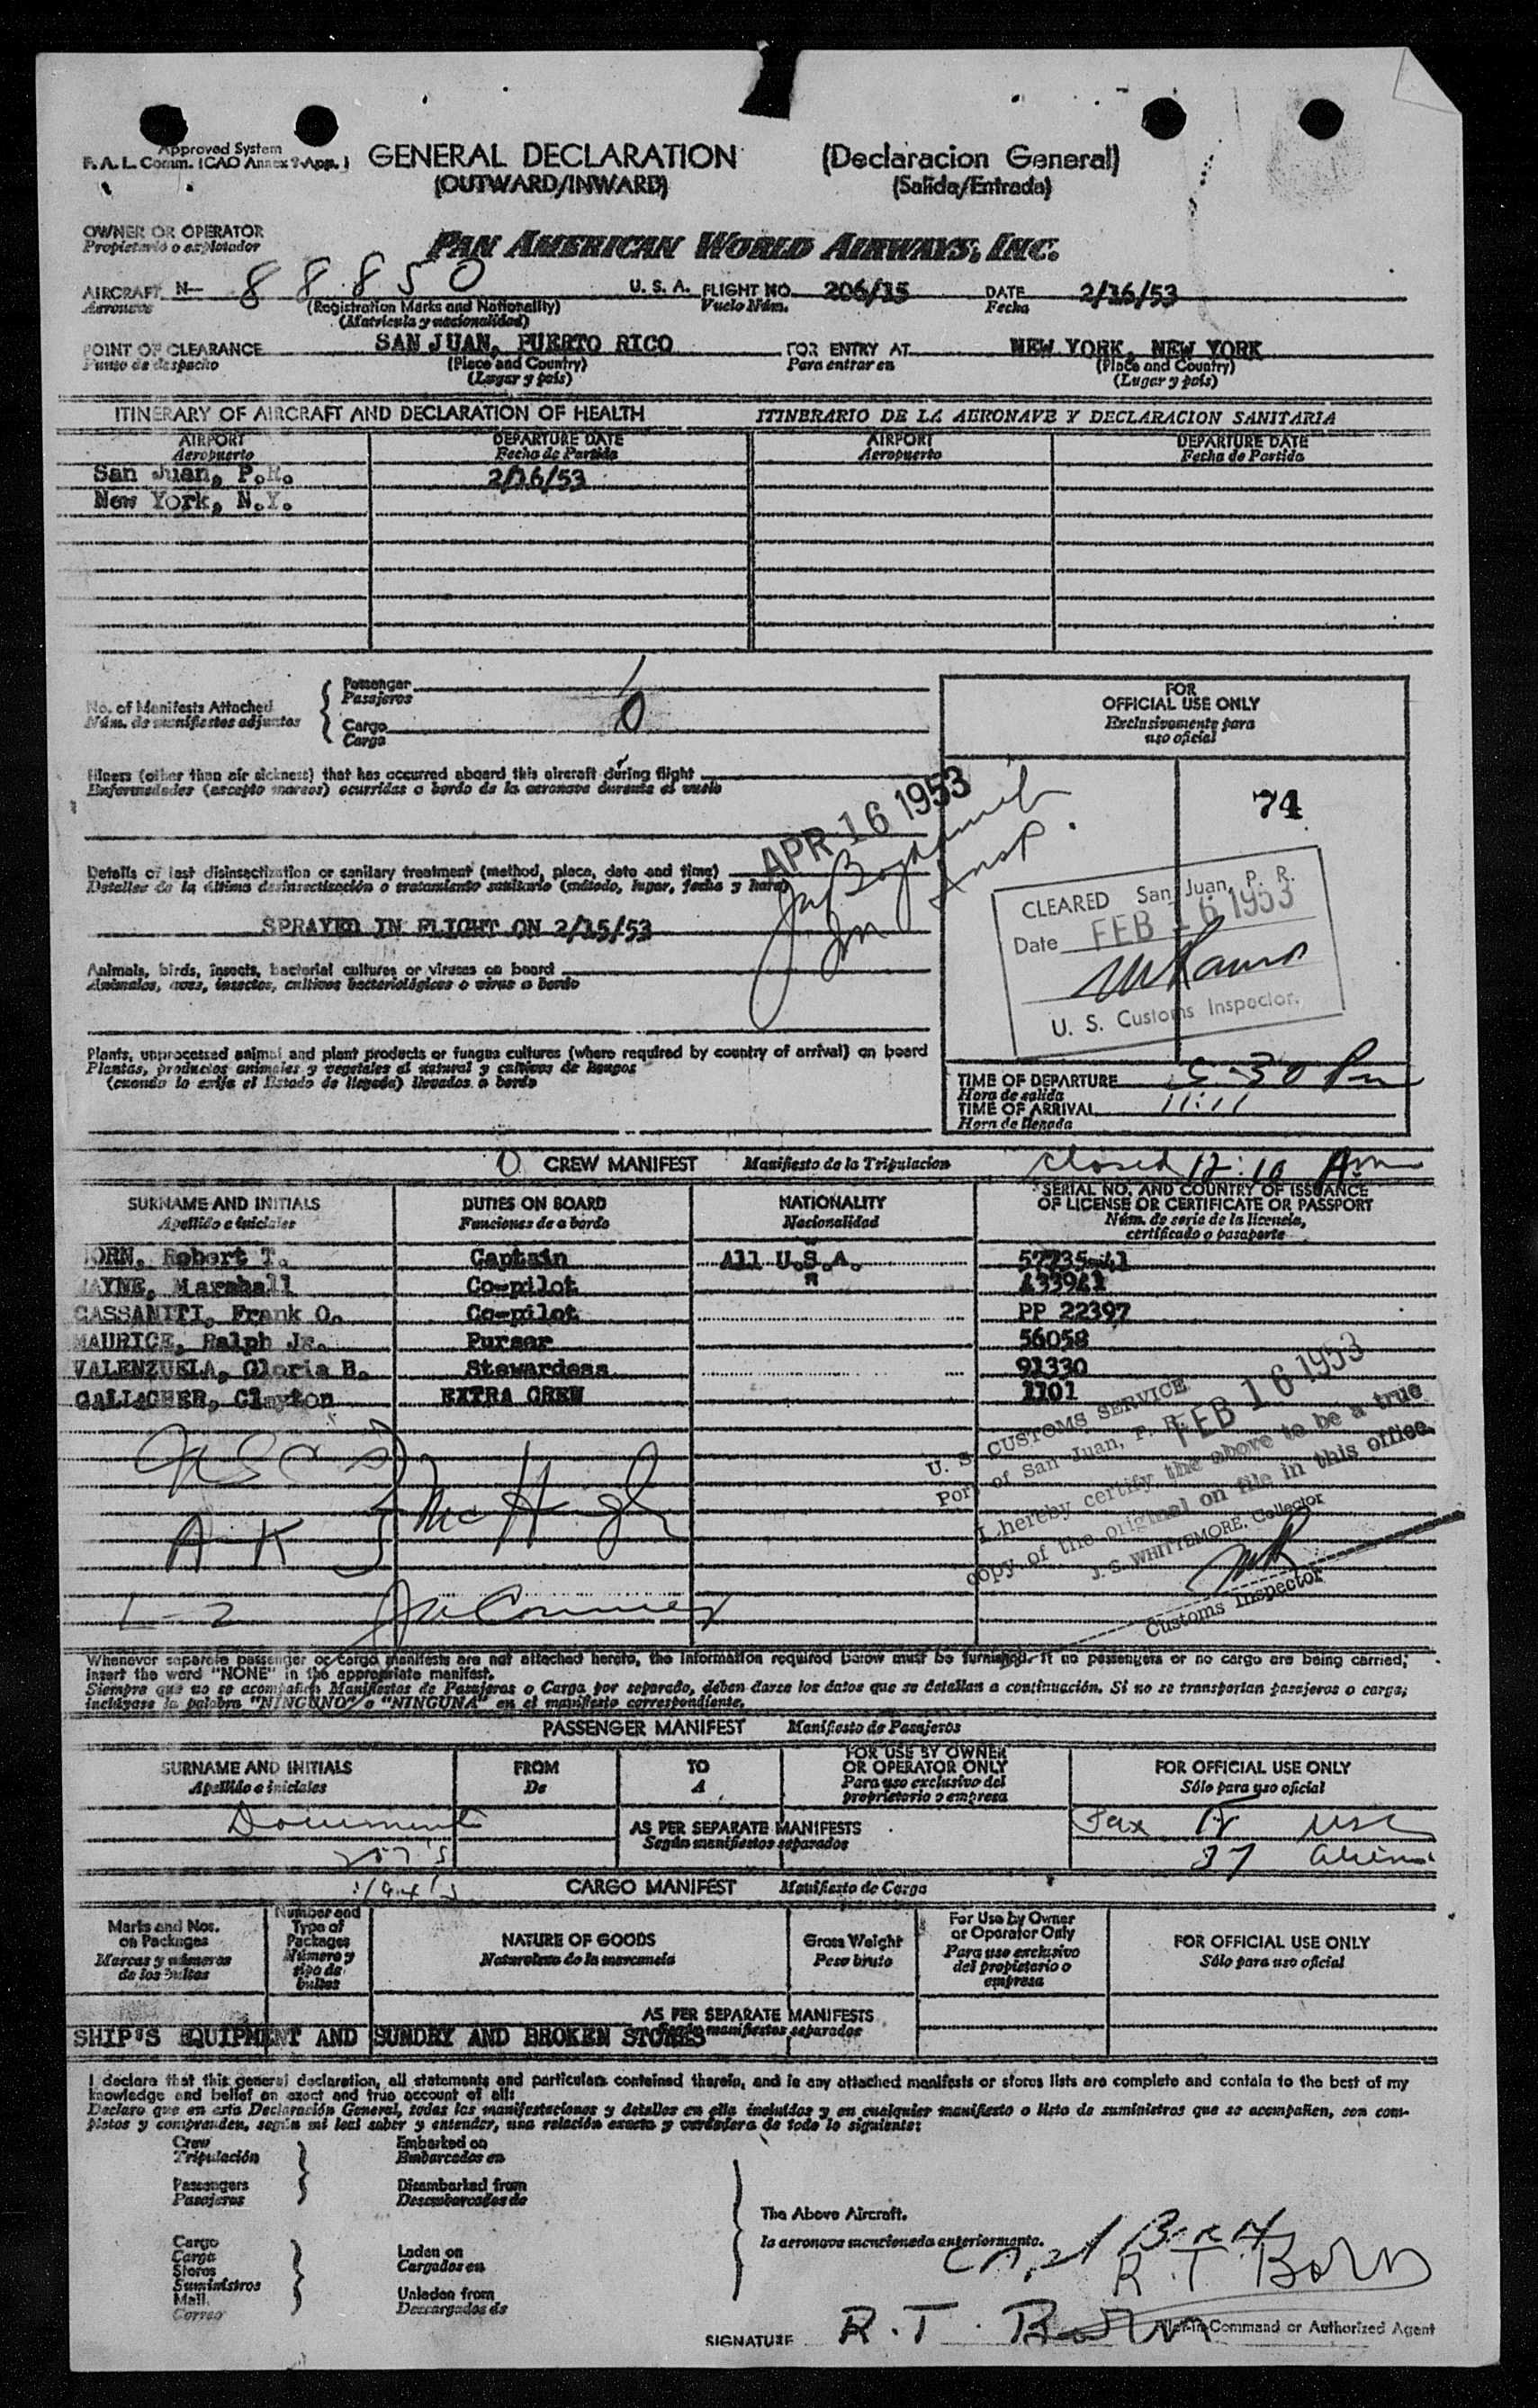 Approved System
F. A. L. Comm. ICAO Annex 9-App. 1
GENERAL DECLARATION (Declaracion General)
(OUTWARD/INWARD) (Salida/Entrada)
OWNER OR OPERATOR
Propietario o explotador
PAN AMERICAN WORLD AIRWAYS, INC.
AIRCRAFT N- 88850 U. S. A. FLIGHT NO. 206/15 DATE 2/16/53
Aeronave (Registration Marks and Nationality) Vuelo Núm. Fecha
(Matricula y nacionalidad)
POINT OF CLEARANCE SAN JUAN, PUERTO RICO FOR ENTRY AT NEW YORK, NEW YORK
Punto de despacho (Place and Country) Para entrar en (Place and Country)
(Lugar y pais) (Lugar y pais)
ITINERARY OF AIRCRAFT AND DECLARATION OF HEALTH ITINERARIO DE LA AERONAVE Y DECLARACION SANITARIA
AIRPORT DEPARTURE DATE AIRPORT DEPARTURE DATE
Aeropuerto Fecha de Partida Aeropuerto Fecha de Partida
San Juan, P.R. 2/16/53
New York, N.Y.
No. of Manifests Attached
Núm. de manifiestos adjuntos
Passenger
Pasajeros
Cargo 0
Carga
FOR
OFFICIAL USE ONLY
Exclusivamente para
uso oficial
74
Illness (other than air sickness) that has occurred aboard this aircraft during flight
Enfermedades (excepto mareos) ocurridas a bordo de la aeronave durante el vuelo
APR 16 1953
Insp.
Details of last disinsectization or sanitary treatment (method, place, date and time)
Detalles de la última desinsectización o tratamiento sanitario (método, lugar, fecha y hora)
SPRAYED IN FLIGHT ON 2/15/53
CLEARED San Juan, P. R.
Date FEB 16 1953
U. S. Customs Inspector.
Animals, birds, insects, bacterial cultures or viruses on board
Animales, aves, insectos, cultivos bacteriológicos o virus a bordo
Plants, unprocessed animal and plant products or fungus cultures (where required by country of arrival) on board
Plantas, productos animales y vegetales al natural y cultivos de hongos
(cuando lo exija el Estado de llegada) llevados a bordo
TIME OF DEPARTURE 5-30 Pm
Hora de salida
TIME OF ARRIVAL 11:11
Hora de llegada
CREW MANIFEST Manifiesto de la Tripulacion Closed 12:10 Am
SURNAME AND INITIALS DUTIES ON BOARD NATIONALITY SERIAL NO. AND COUNTRY OF ISSUANCE
OF LICENSE OR CERTIFICATE OR PASSPORT
Apellido e iniciales Funciones de a bordo Nacionalidad Núm. de serie de la licencia,
certificado o pasaporte
BORN, Robert T. Captain All U.S.A.
Marshall Co-pilot " 433941
CASSANITI, Frank O. Co-pilot PP 22397
MAURICE, Ralph Jr. Purser 56058
VALENZUELA, Gloria B. Stewardess 91330
GALLAGHER, Clayton EXTRA CREW 1101
FEB 16 1953
U. S. CUSTOMS SERVICE
Port of San Juan, P. R.
I hereby certify the above to be a true
copy of the original on file in this office.
J. S. WHITTEMORE, Collector
Customs Inspector
McHugh
A-K
L-2
Whenever separate passenger or cargo manifests are not attached hereto, the information required below must be furnished. If no passengers or no cargo are being carried,
insert the word "NONE" in the appropriate manifest.
Siempre que no se acompañen Manifiestos de Pasajeros o Carga por separado, deben darse los datos que se detallan a continuación. Si no se transportan pasajeros o carga,
inclúyase la palabra "NINGUNO" o "NINGUNA" en el manifiesto correspondiente.
PASSENGER MANIFEST Manifiesto de Pasajeros
SURNAME AND INITIALS FROM TO FOR USE BY OWNER
OR OPERATOR ONLY FOR OFFICIAL USE ONLY
Apellido e iniciales De A Para uso exclusivo del
propietario o empresa Sólo para uso oficial
Document
AS PER SEPARATE MANIFESTS
Según manifiestos separados
257's
37 Aliens
CARGO MANIFEST Manifiesto de Carga
Marks and Nos.
on Packages
Marcas y números
de los bultos
Number and
Type of
Packages
Número y
tipo de
bultos
NATURE OF GOODS
Naturaleza de la mercancia
Gross Weight
Peso bruto
For Use by Owner
or Operator Only
Para uso exclusivo
del propietario o
empresa
FOR OFFICIAL USE ONLY
Sólo para uso oficial
AS PER SEPARATE MANIFESTS
Según manifiestos separados
SHIP'S EQUIPMENT AND SUNDRY AND BROKEN STORES
I declare that this general declaration, all statements and particulars contained therein, and in any attached manifests or stores lists are complete and contain to the best of my
knowledge and belief an exact and true account of all:
Declaro que en esta Declaración General, todas las manifestaciones y detalles en ella incluidos y en cualquier manifiesto o lista de suministros que se acompañen, son com-
pletos y comprenden, según mi leal saber y entender, una relación exacta y verdadera de todo lo siguiente:
Crew
Tripulación
Passengers
Pasajeros
Embarked on
Embarcados en
Disembarked from
Desembarcados de
Cargo
Carga
Stores
Suministros
Mail.
Correo
Laden on
Cargados en
Unladen from
Descargados de
The Above Aircraft.
la aeronave mencionada anteriormente.
R. T. Born
SIGNATURE R. T. Born
Pilot-in-Command or Authorized Agent